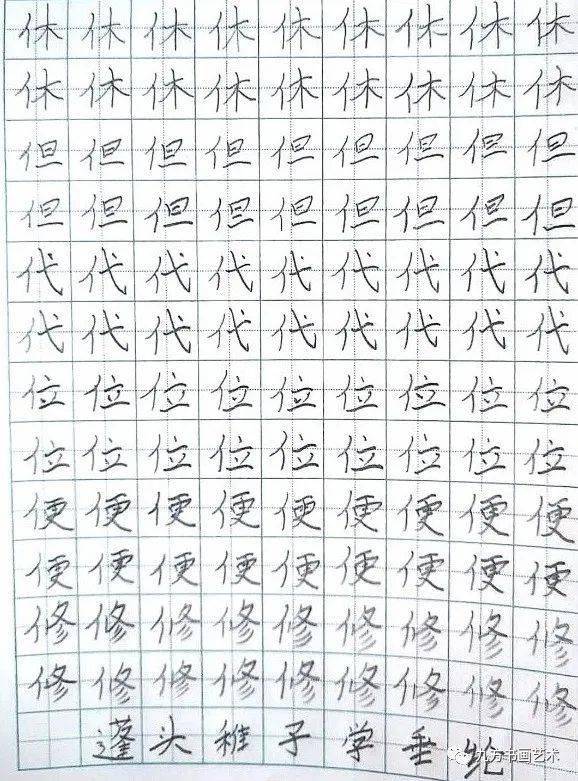 休休休休休休休休休
休休休休休休休休休
但但但但但但但但但
但但但但但但但但但
代代代代代代代代代
代代代代代代代代代
位位位位位位位位位
位位位位位位位位位
便便便便便便便便便
便便便便便便便便便
修修修修修修修修修
修修修修修修修修修
蓬头稚子学垂纶
九方书画艺术